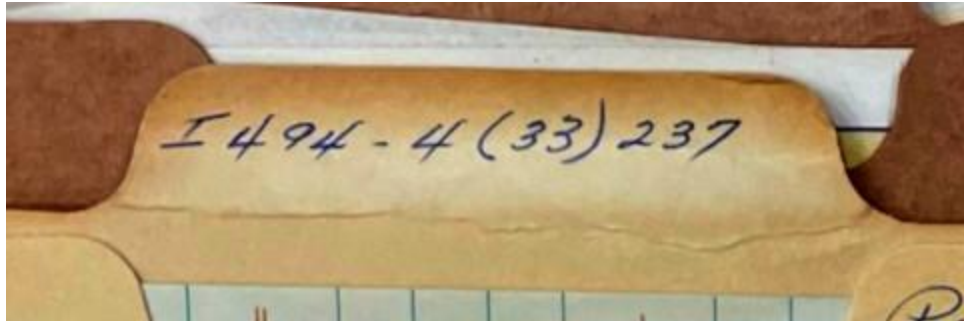 I 494-4(33)237